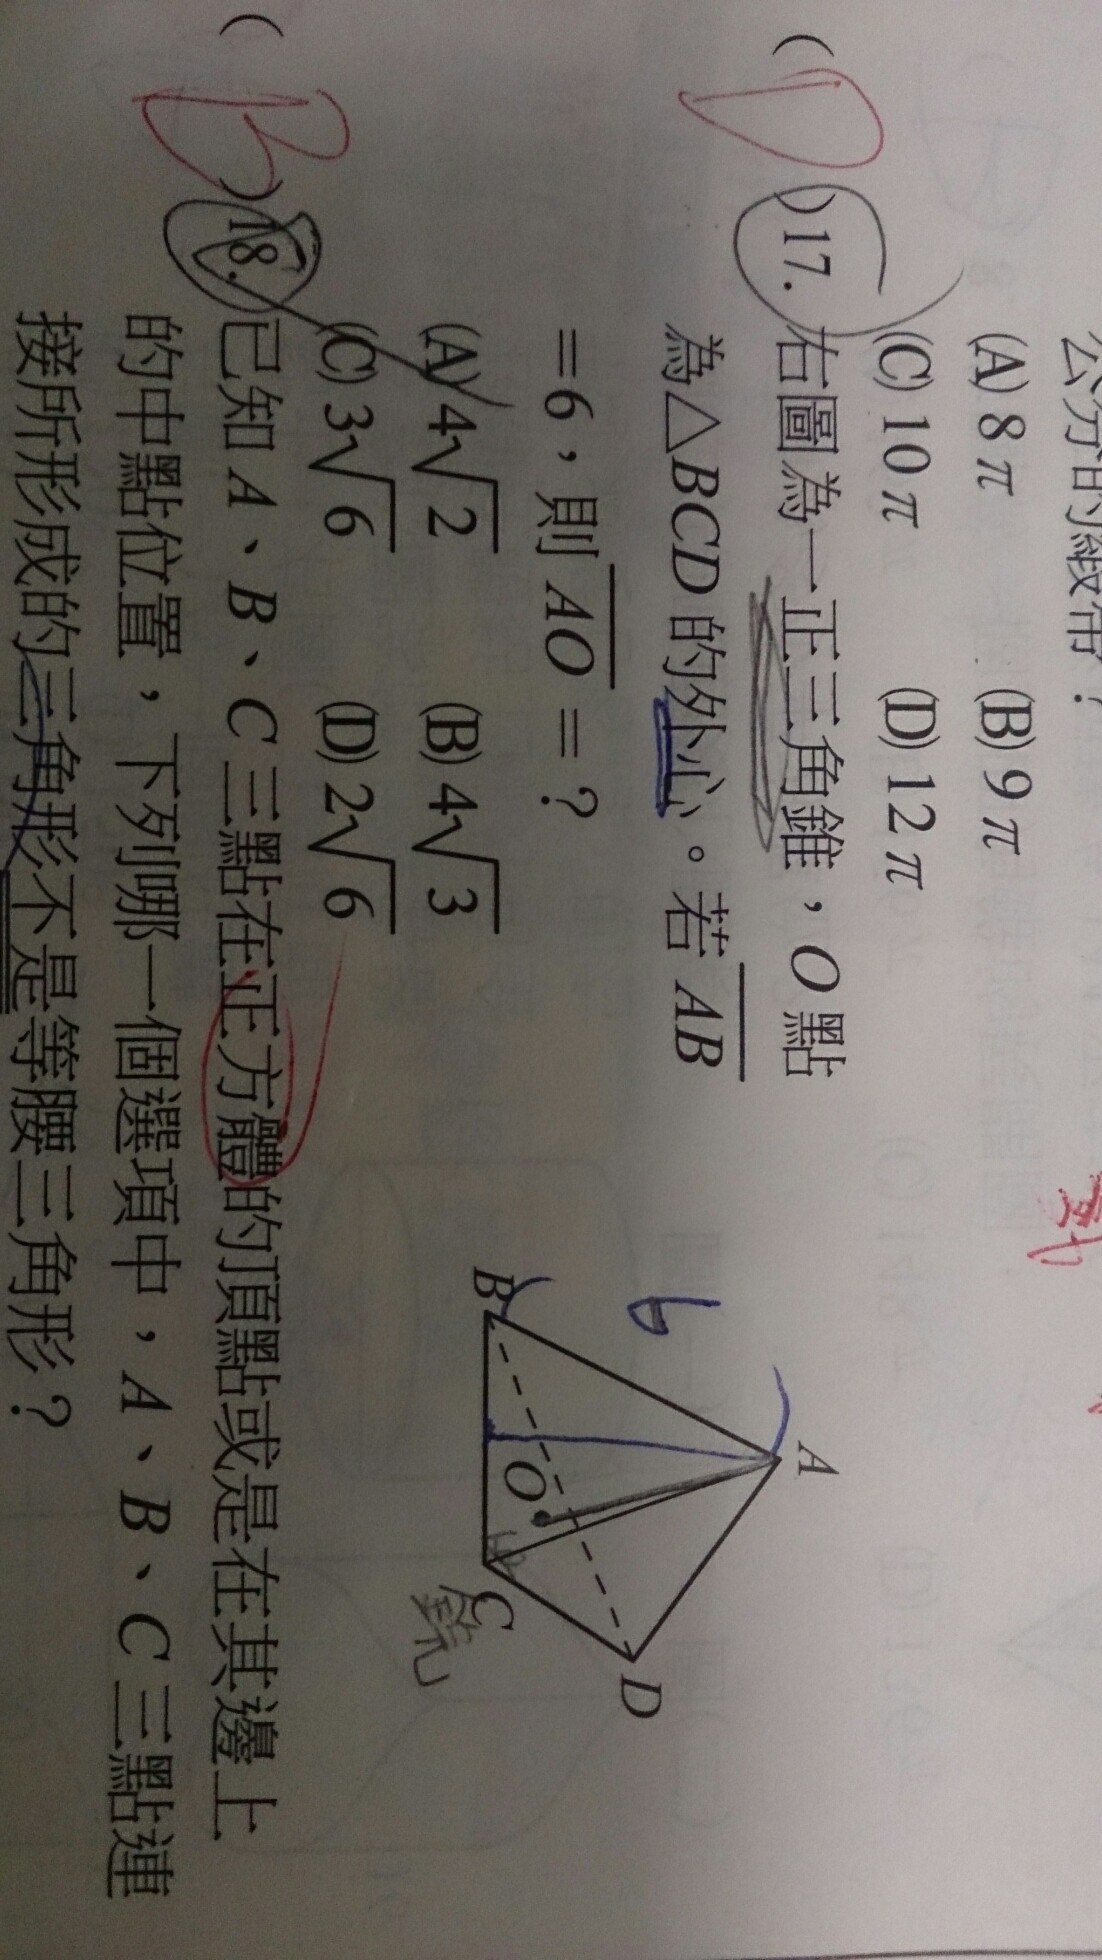 公分的緞帶？
(A) 8π (B) 9π
(C) 10π (D) 12π
( D )17. 右圖為一正三角錐，O 點
為△BCD 的外心。若 AB
=6，則 AO = ?
(A) 4√2 (B) 4√3
(C) 3√6 (D) 2√6
A
6
B
O
C
D
( B )18. 已知 A、B、C 三點在正方體的頂點或是在其邊上
的中點位置，下列哪一個選項中，A、B、C 三點連
接所形成的三角形不是等腰三角形？